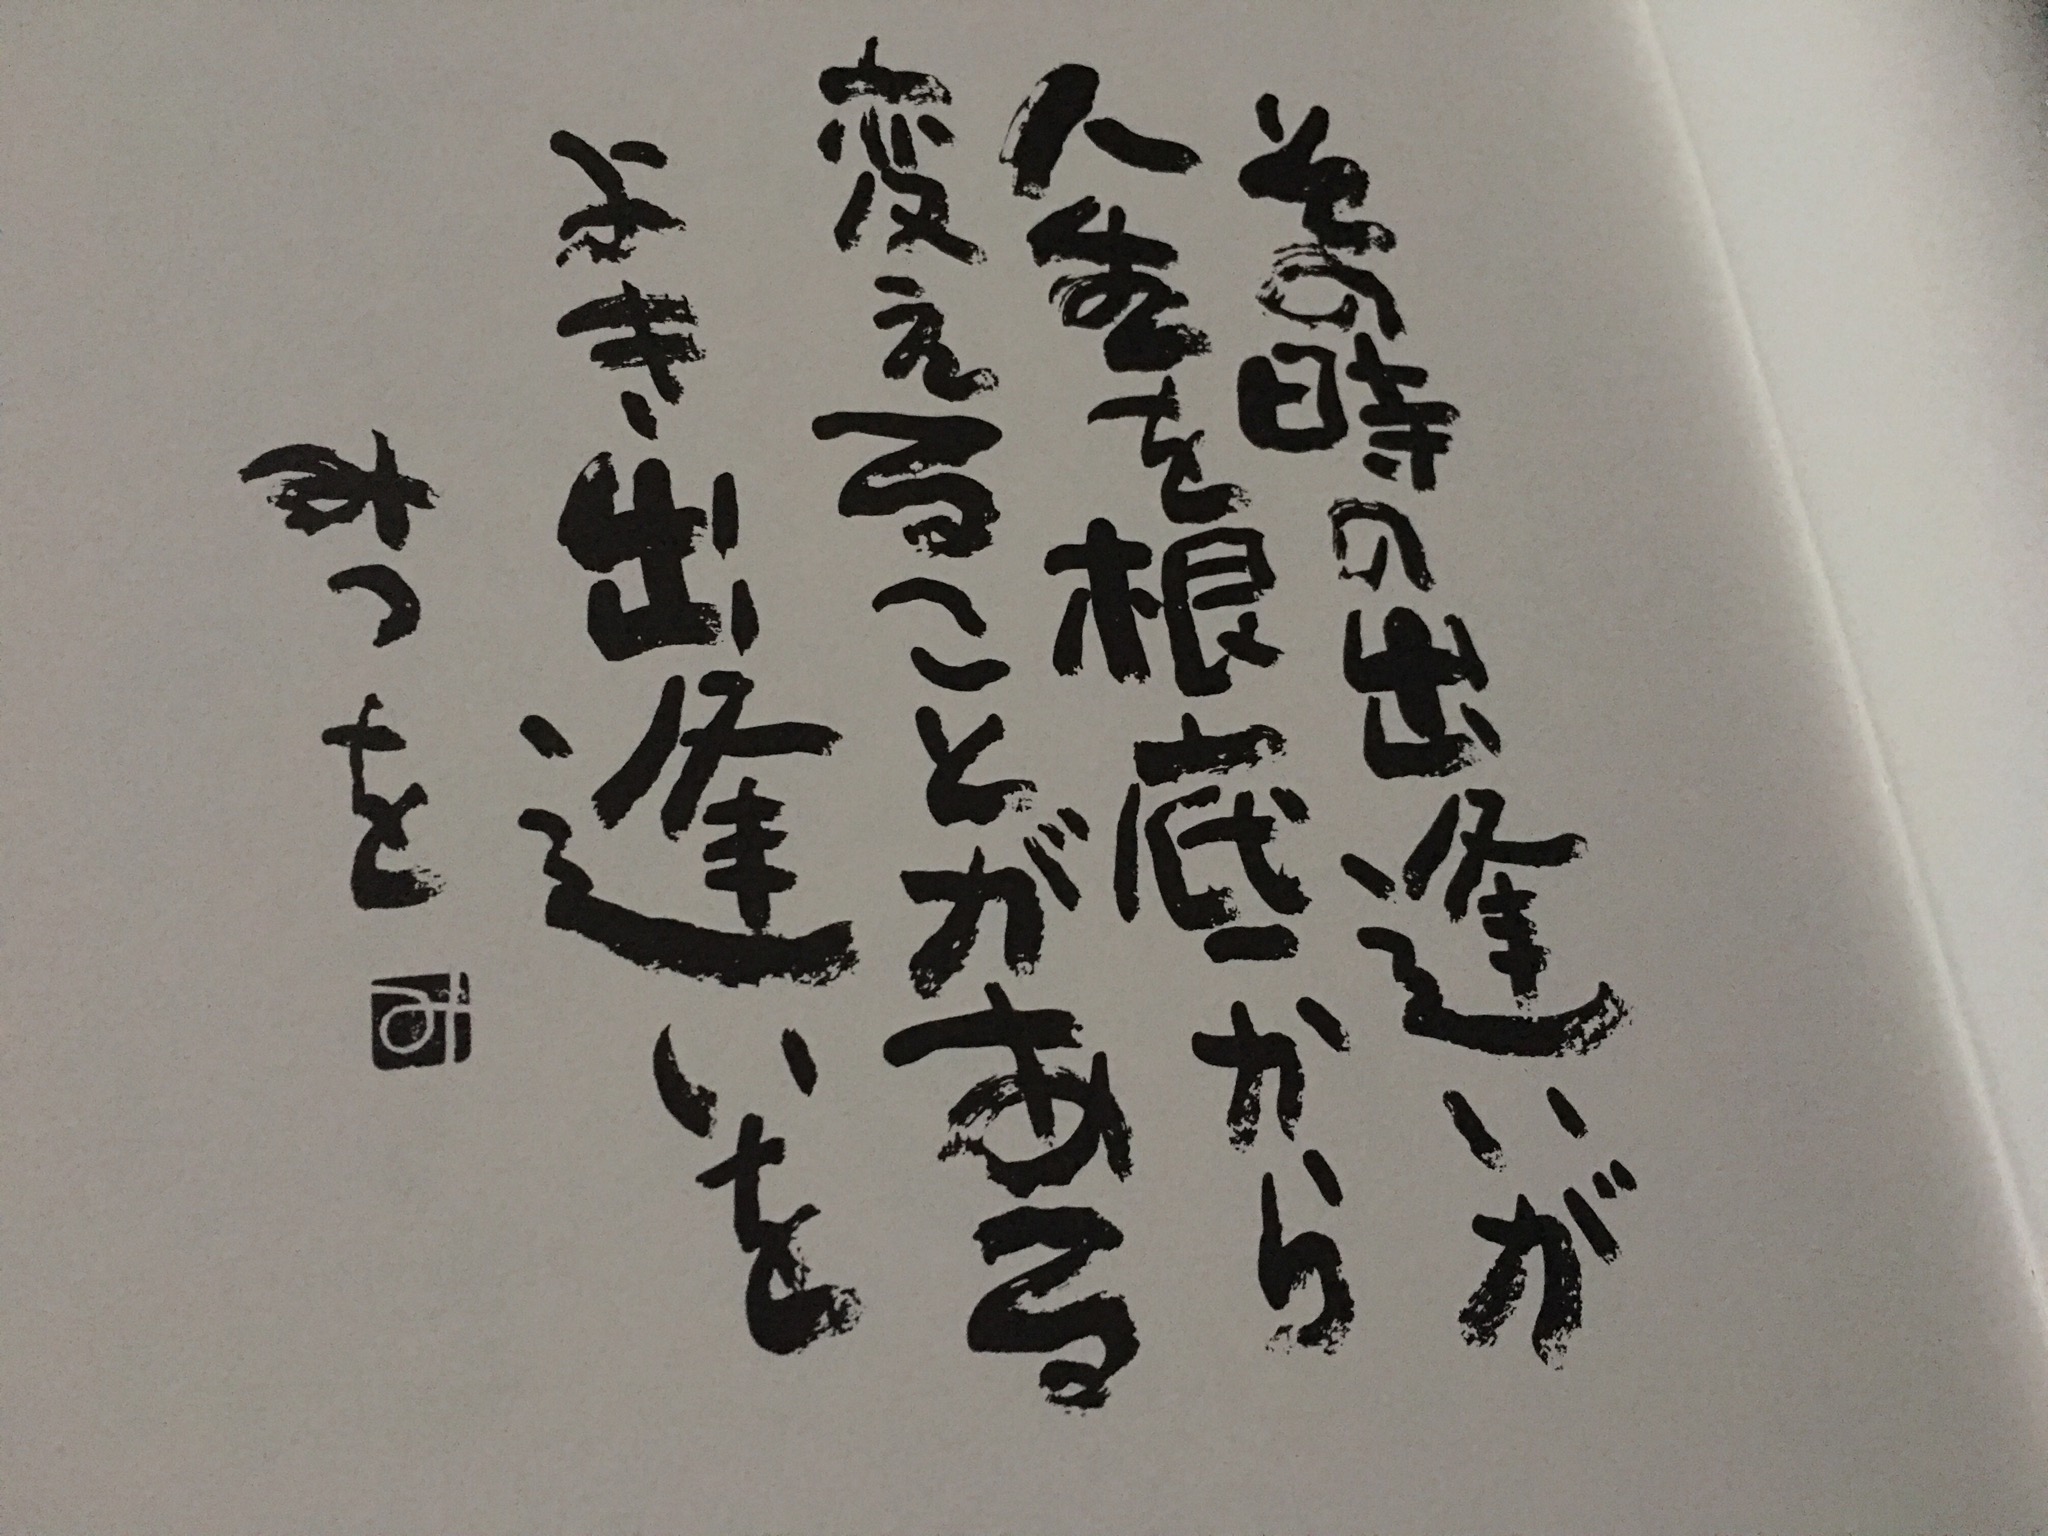 その時の出逢いが
人生を根底から
変えることがある
よき出逢いを
みつを
み